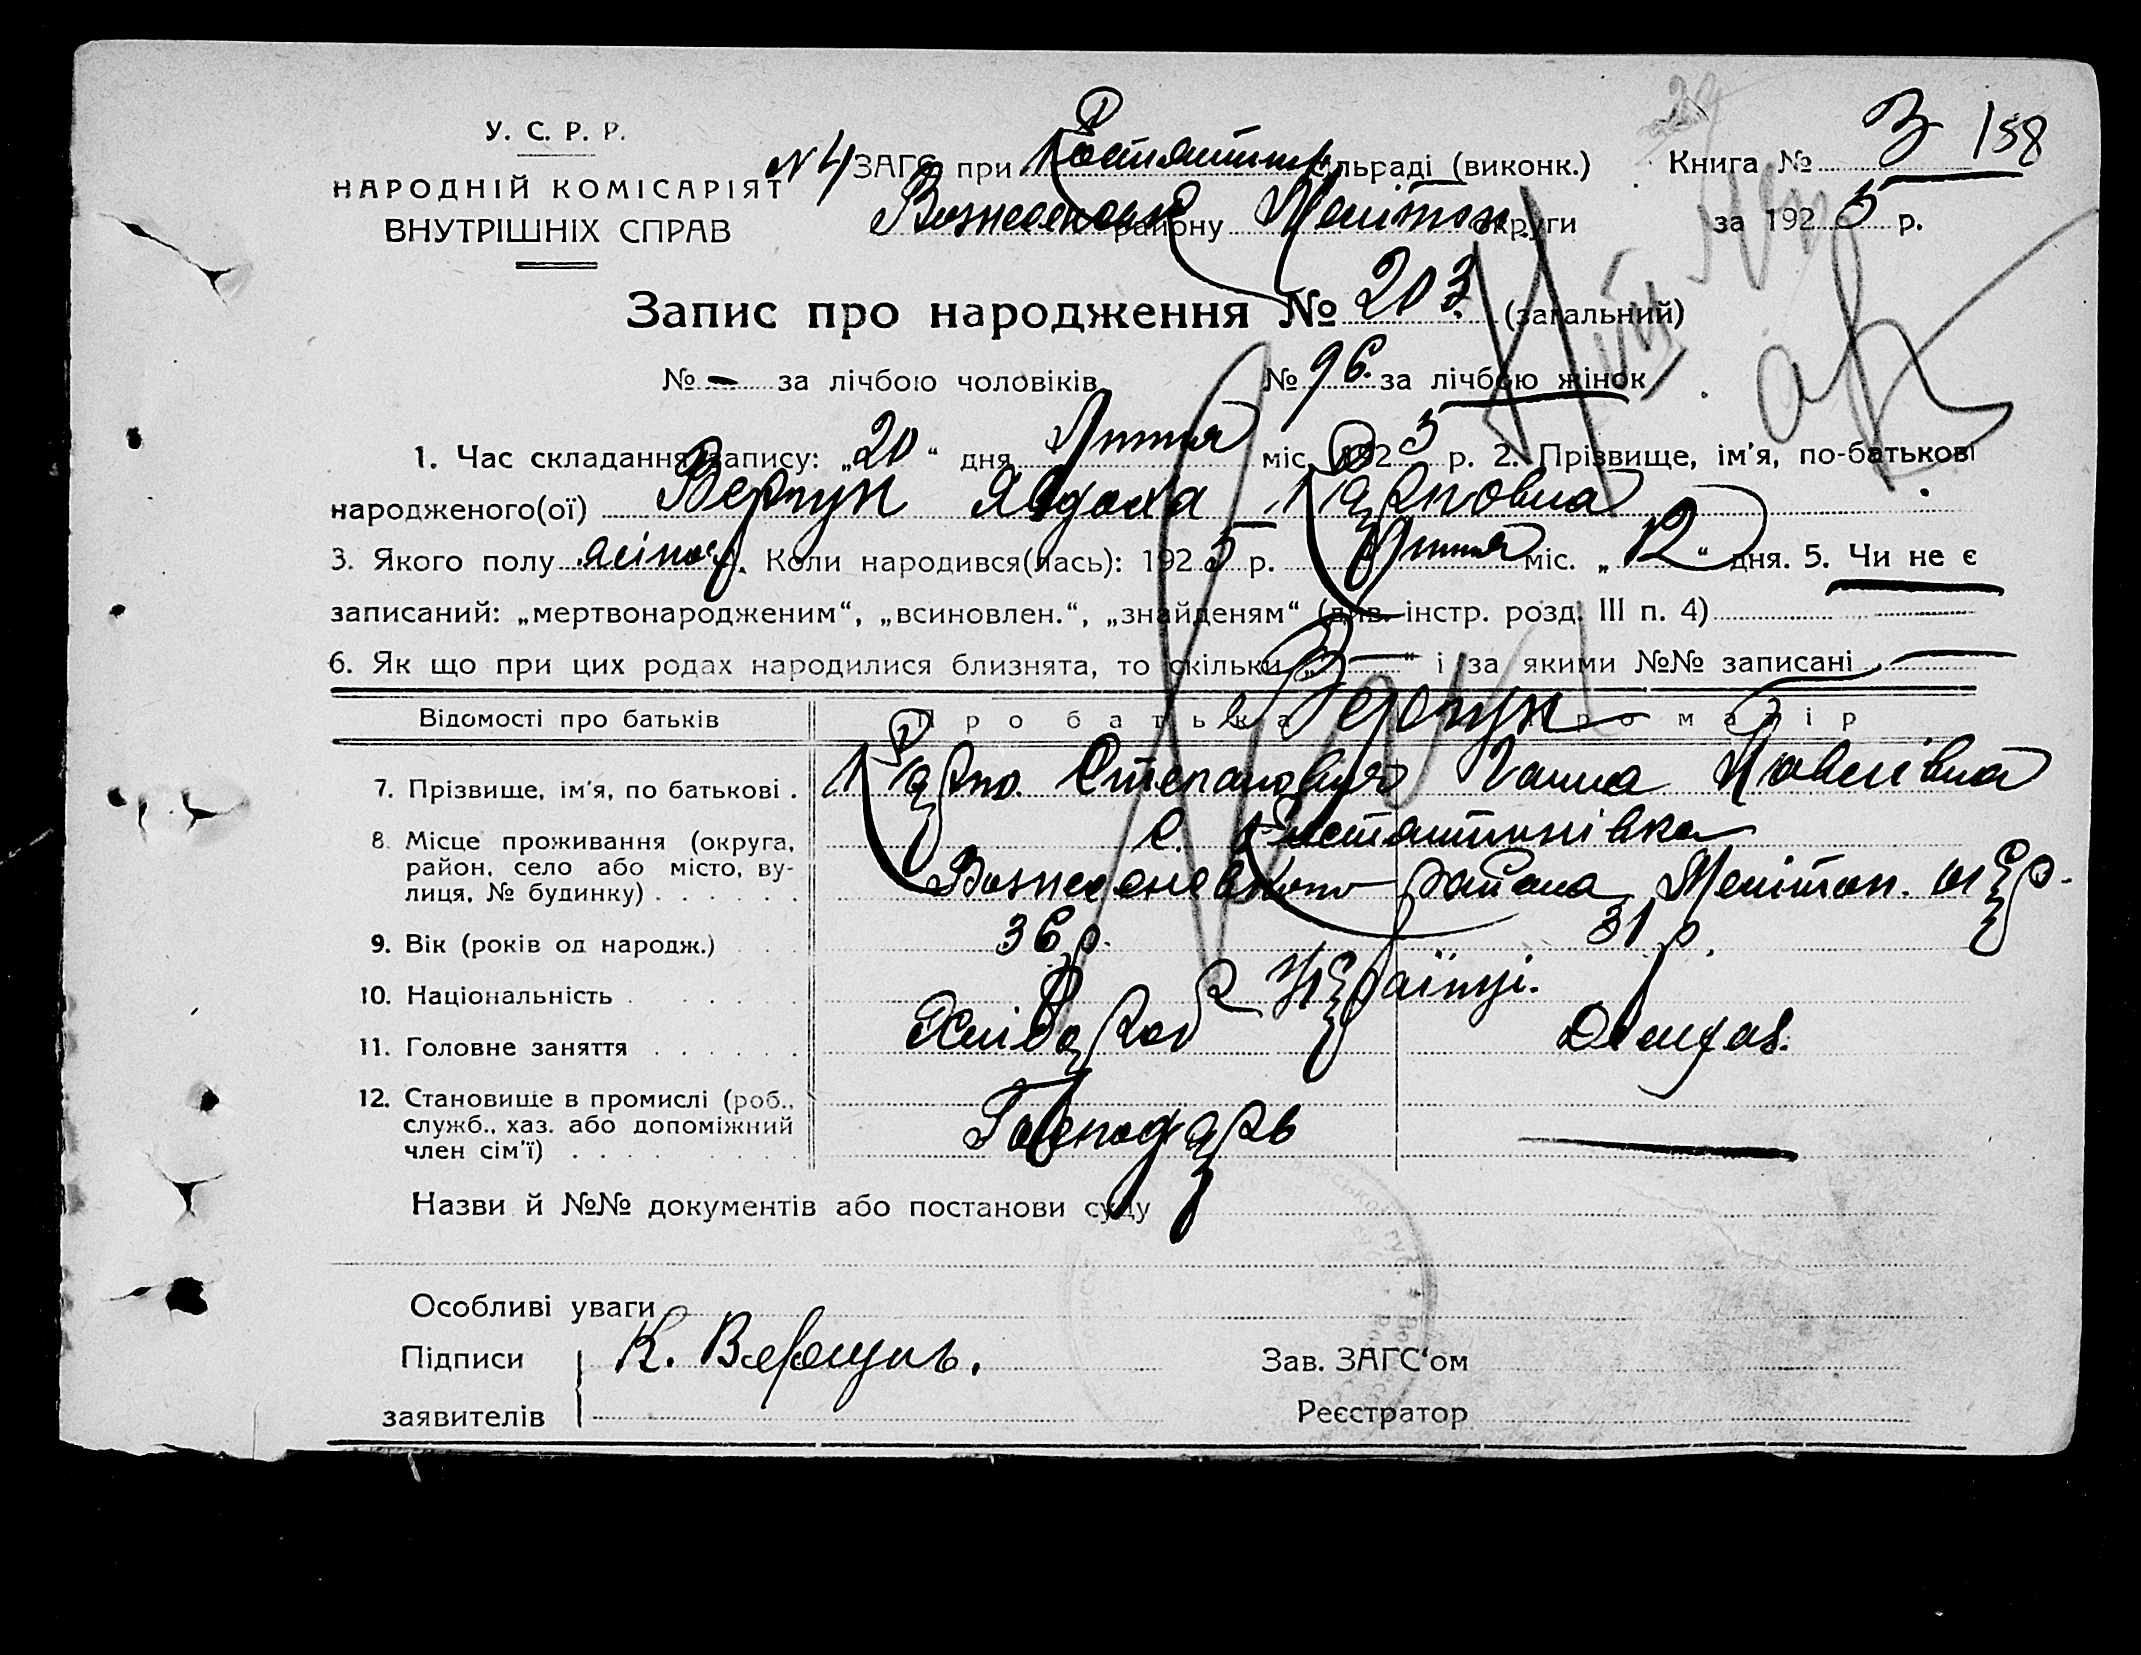 У. С. Р. Р.
НАРОДНІЙ КОМІСАРІЯТ
ВНУТРІШНІХ СПРАВ
N 4 ЗАГС при Костянтин сільраді (виконк.)
району Меліток округи
Книга № 3 158
за 1925 р.
Запис про народження № 203 (загальний)
№ - за лічбою чоловіків № 96. за лічбою жінок
1. Час складання запису: „20“ дня Липня міс. 1925 р. 2. Прізвище, ім'я, по-батькові
народженого(ої) Верпук Явдоха Карповна
3. Якого полу жіноч. Коли народився(лась): 1925 р. Липня міс. „12“ дня. 5. Чи не є
записаний: „мертвонародженим“, „всиновлен.“, „знайденям“ (див. інстр. розд. III п. 4)
6. Як що при цих родах народилися близнята, то скільки „—“ і за якими №№ записані —
Відомості про батьків Про батька Про матір
Верпук
7. Прізвище, ім'я, по батькові . Карпо Степанович Ганна Павлівна
8. Місце проживання (округа, с. Костянтинівка
район, село або місто, ву-
лиця, № будинку) . . . . . . Вознесенського района Мелітоп. окр.
9. Вік (років од народж.) 36 р. 31 р.
10. Національність . . . . . . Українці.
11. Головне заняття . . . . . . Хлібороб Домгос.
12. Становище в промислі (роб.,
служб., хаз. або допоміжний Господарь —
член сім'ї) . . . .
Назви й №№ документів або постанови суду
Особливі уваги
Підписи К. Верпукъ. Зав. ЗАГС'ом
заявителів Реєстратор